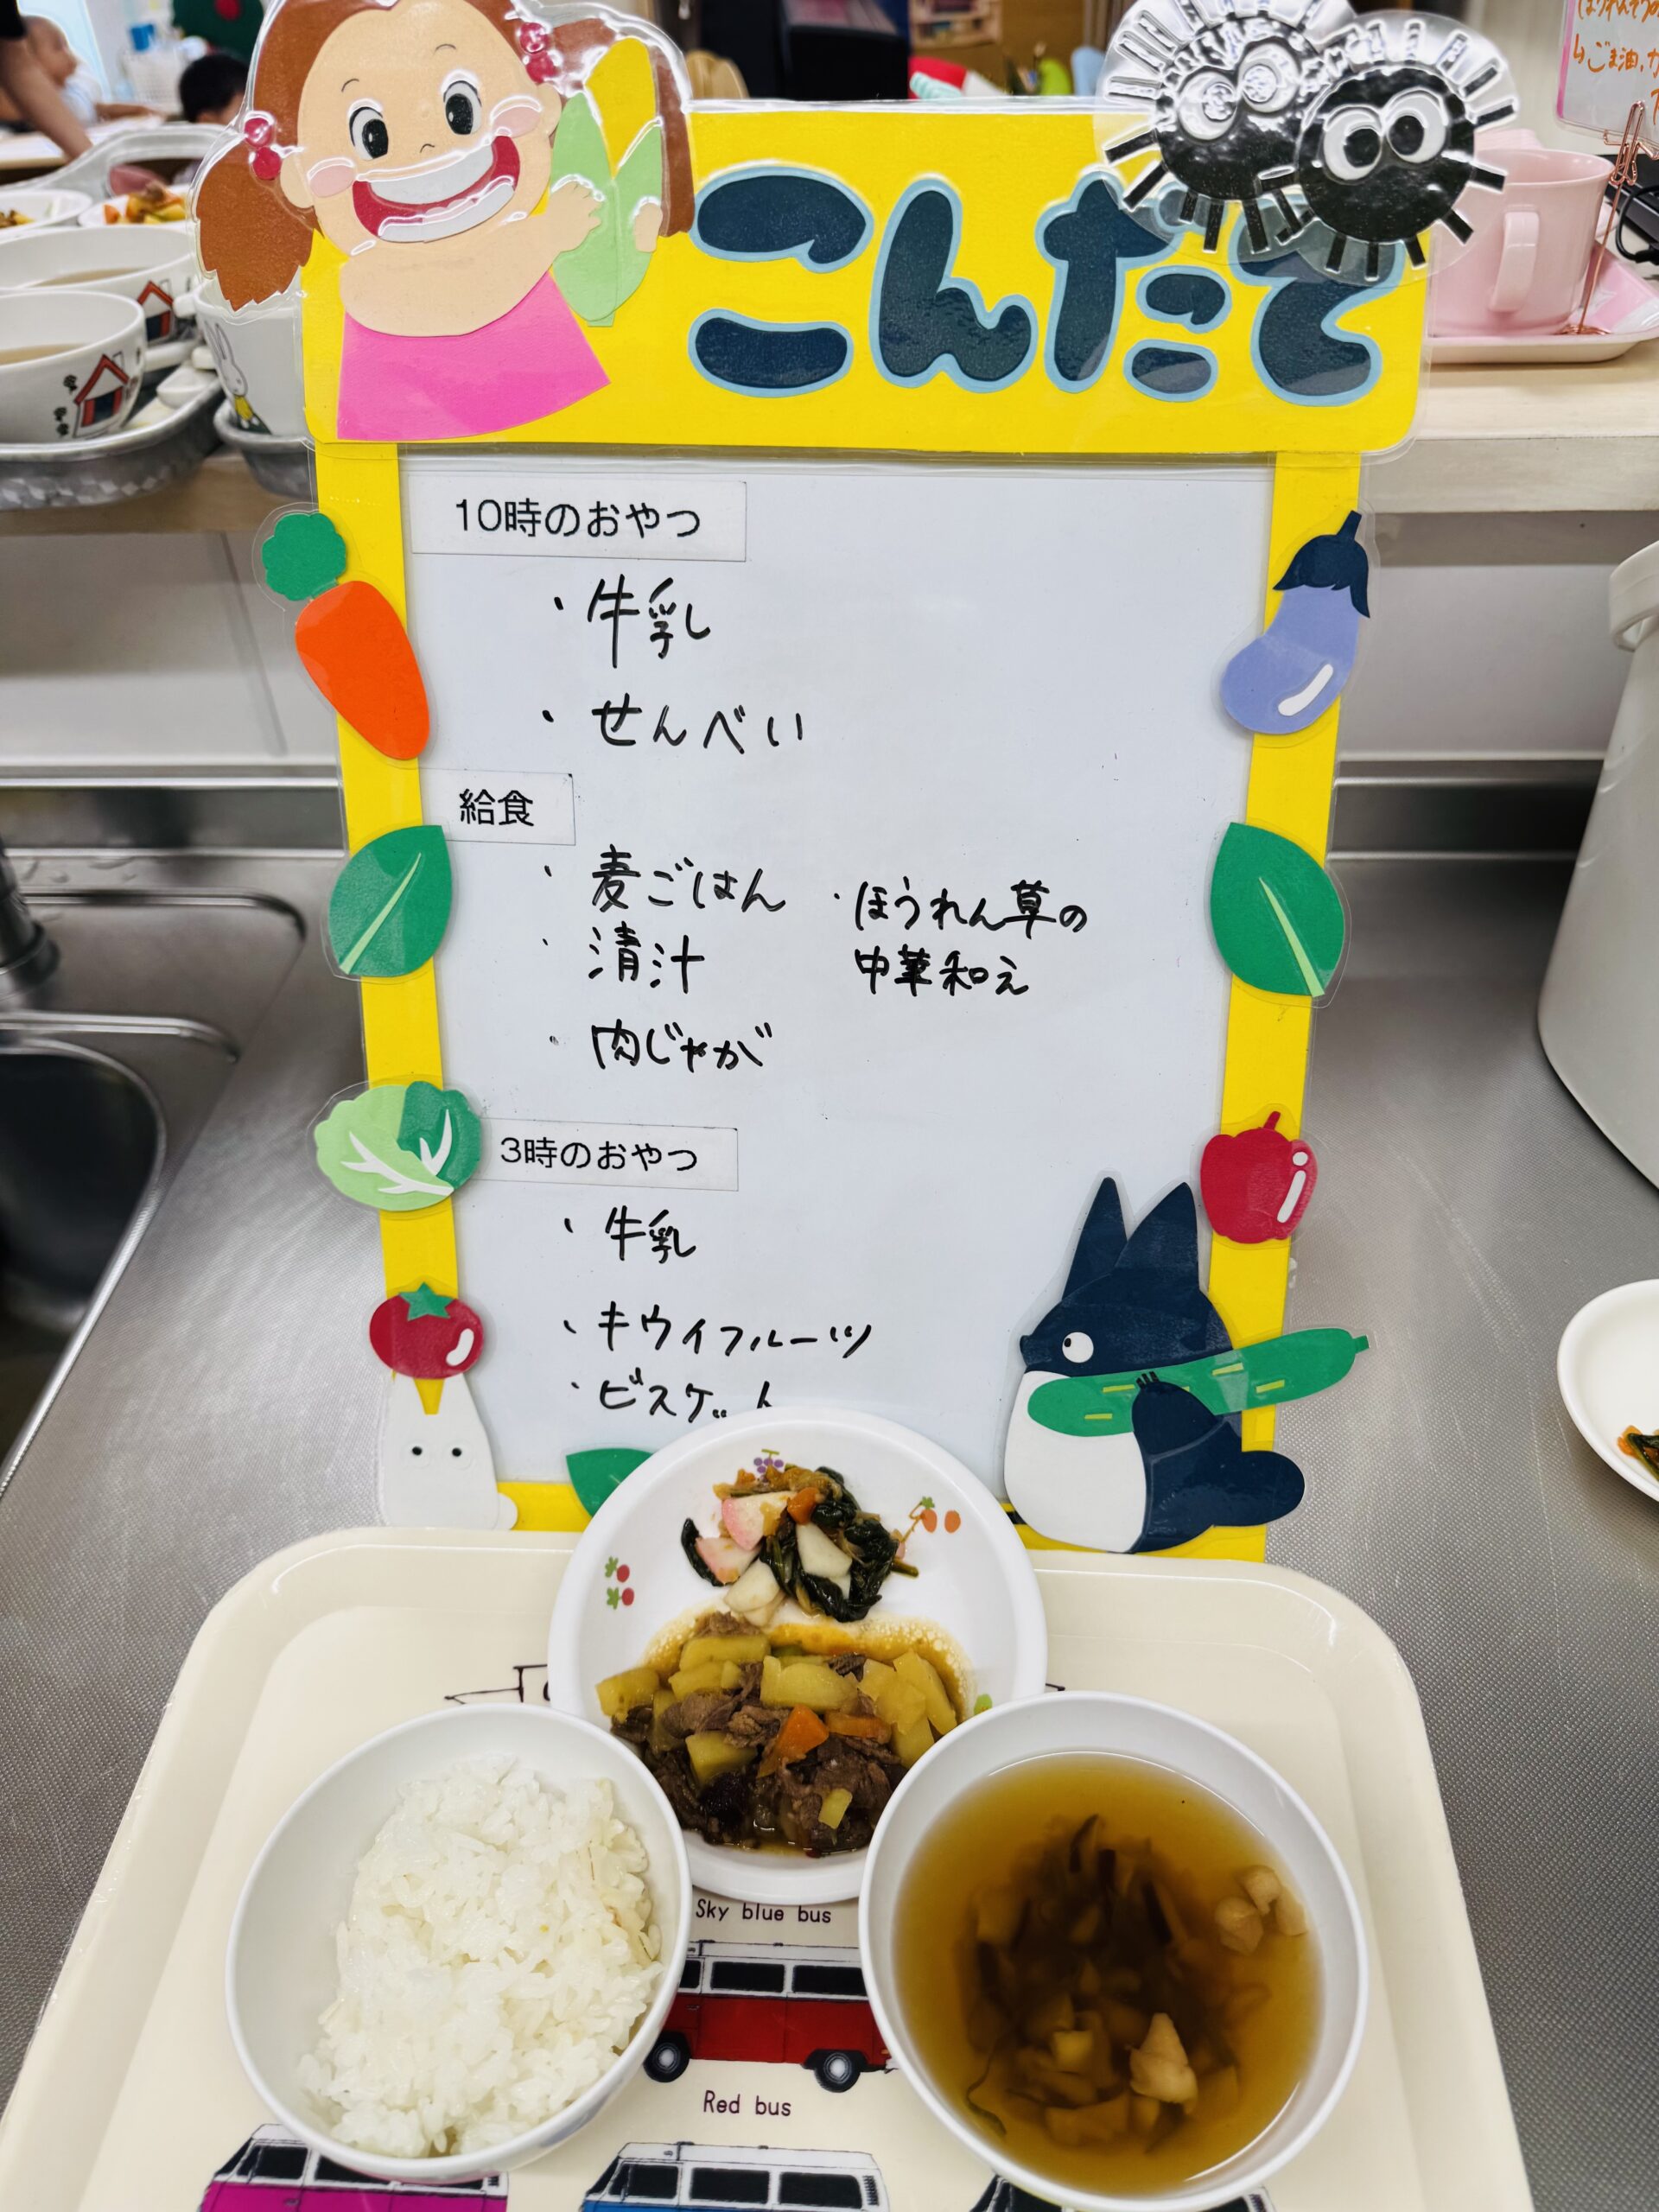 こんだて
10時のおやつ
・牛乳
・せんべい
給食
・麦ごはん
・清汁
・肉じゃが
・ほうれん草の
中華和え
3時のおやつ
・牛乳
・キウイフルーツ
・ビスケット
Sky blue bus
Red bus
ごま油,